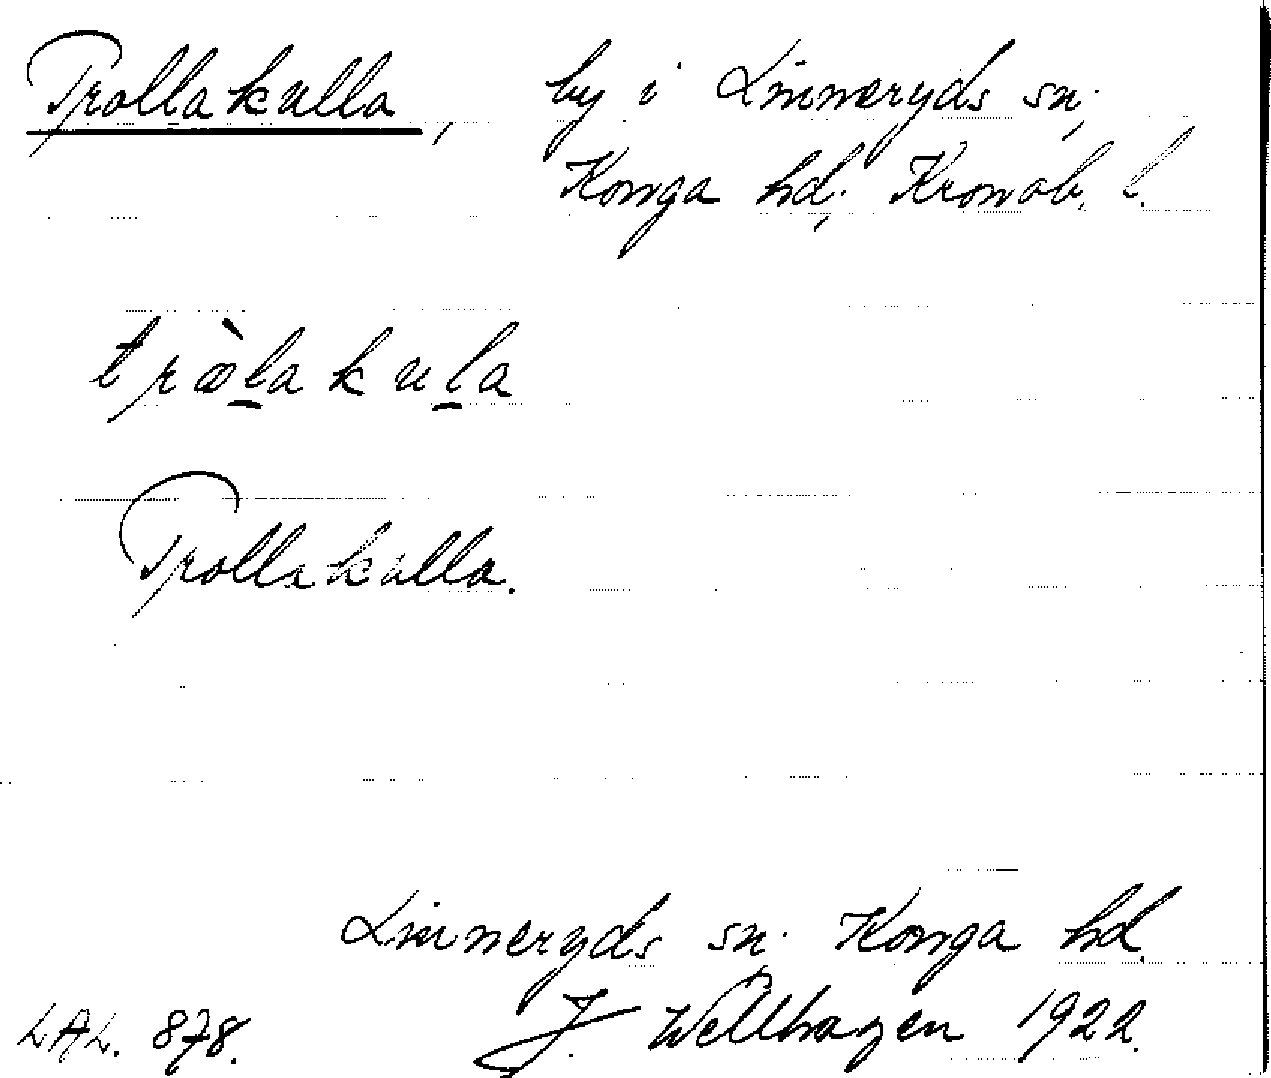 Trollakulla, by i Linneryds sn;
Konga hd; Kronob. l.
træ̀l̲akul̲a
Trollakulla.
Linneryds sn. Konga hd.
LAL. 878. J. Wellhagen 1922.